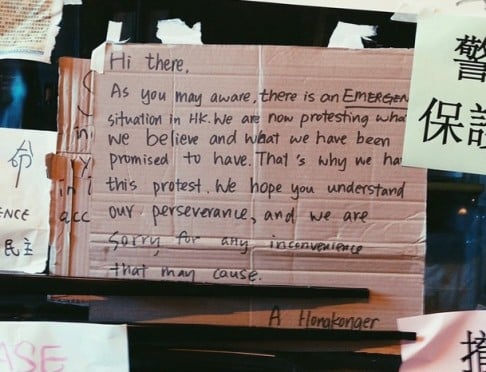 Hi there,
As you may aware, there is an EMERGEN
situation in HK. We are now protesting wha
we believe and what we have been
promised to have. That's why we ha
this protest. We hope you understand
our perseverance, and we are
sorry for any inconvenience
that may cause.
A Hongkonger
警
保護
ENCE
民主
in
acc
ASE